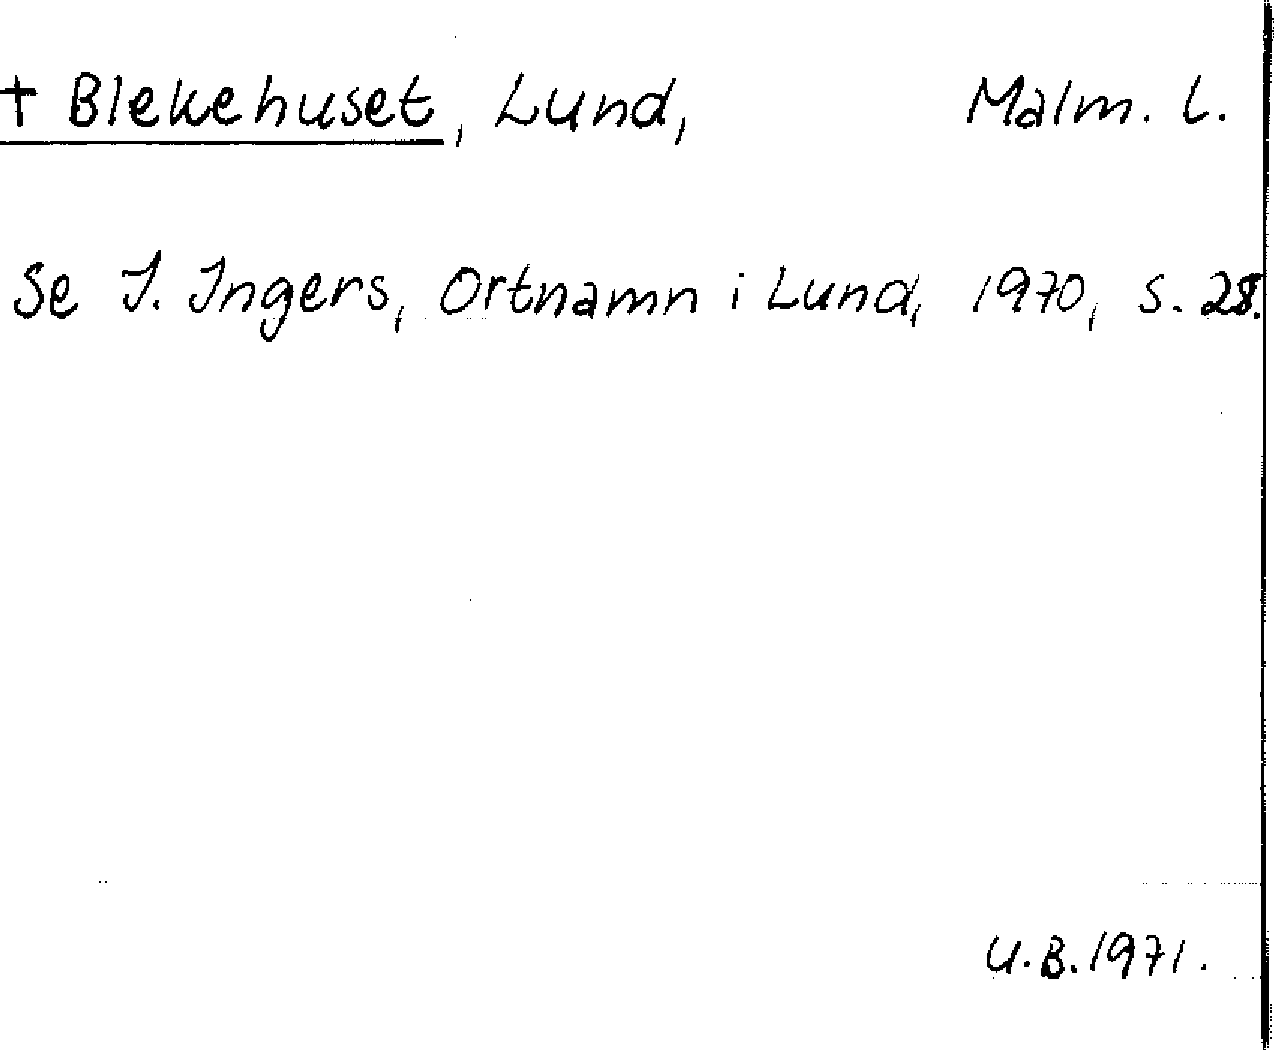 † Blekehuset, Lund, Malm. l.
Se I. Ingers, Ortnamn i Lund, 1970, s. 28.
U.B. 1971.